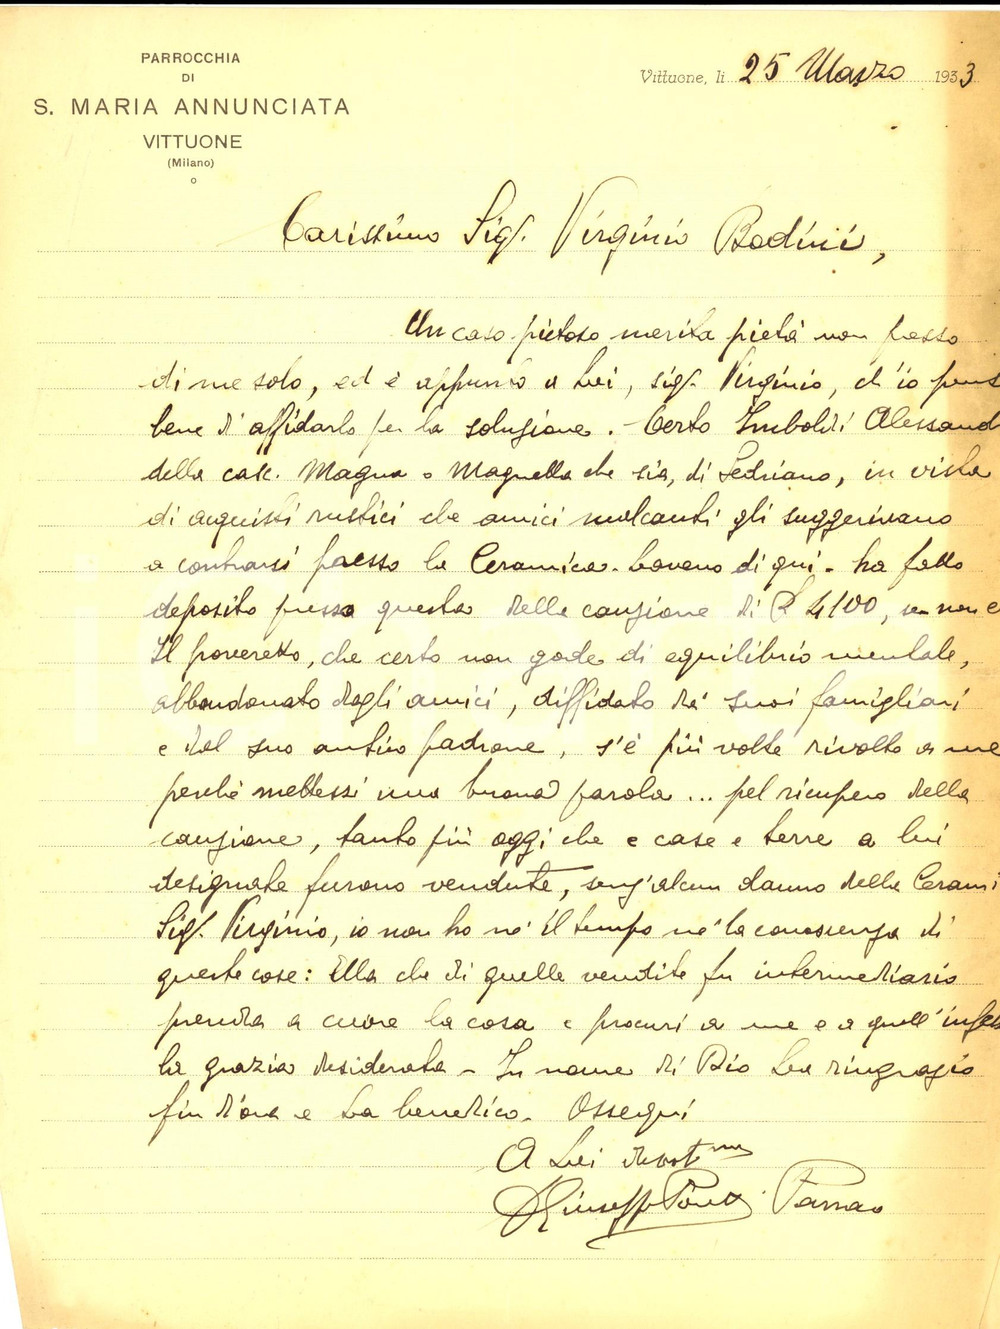 PARROCCHIA
DI
S. MARIA ANNUNCIATA
VITTUONE
(Milano)
Vittuone, li 25 Marzo 1933
Carissimo Sig. Virginio Bodini,
Un caso pietoso merita pietà non posso
di me solo, ed è appunto a Lei, sig. Virginio, ch'io pens
bene di affidarlo per la soluzione. - Certo Imboldi Alessand
della casc. Magna o Magnella che sia, di Sedriano, in vista
di acquisti rustici che amici mercanti gli suggerivano
a contrarsi presso la Ceramica - di qui - ha fatto
deposito presso questa della cauzione di £ 4100, se non e
Il poveretto, che certo non gode di equilibrio mentale,
abbandonato dagli amici, diffidato da' suoi famigliari
e dal suo antico padrone, s'è più volte rivolto a me
perchè mettessi una buona parola ... pel ricupero della
cauzione, tanto più oggi che e case e terre a lui
designate furono vendute, senz'alcun danno della Cerami
Sig. Virginio, io non ho nè il tempo nè la conoscenza di
queste cose: Ella che di quelle vendite fu intermediario
prenda a cuore la cosa e procuri a me e a quell'infel
la grazia desiderata - In nome di Dio La ringrazio
fin d'ora e La benedico. Ossequi
A Lei devot.mo
Giuseppe Parroco